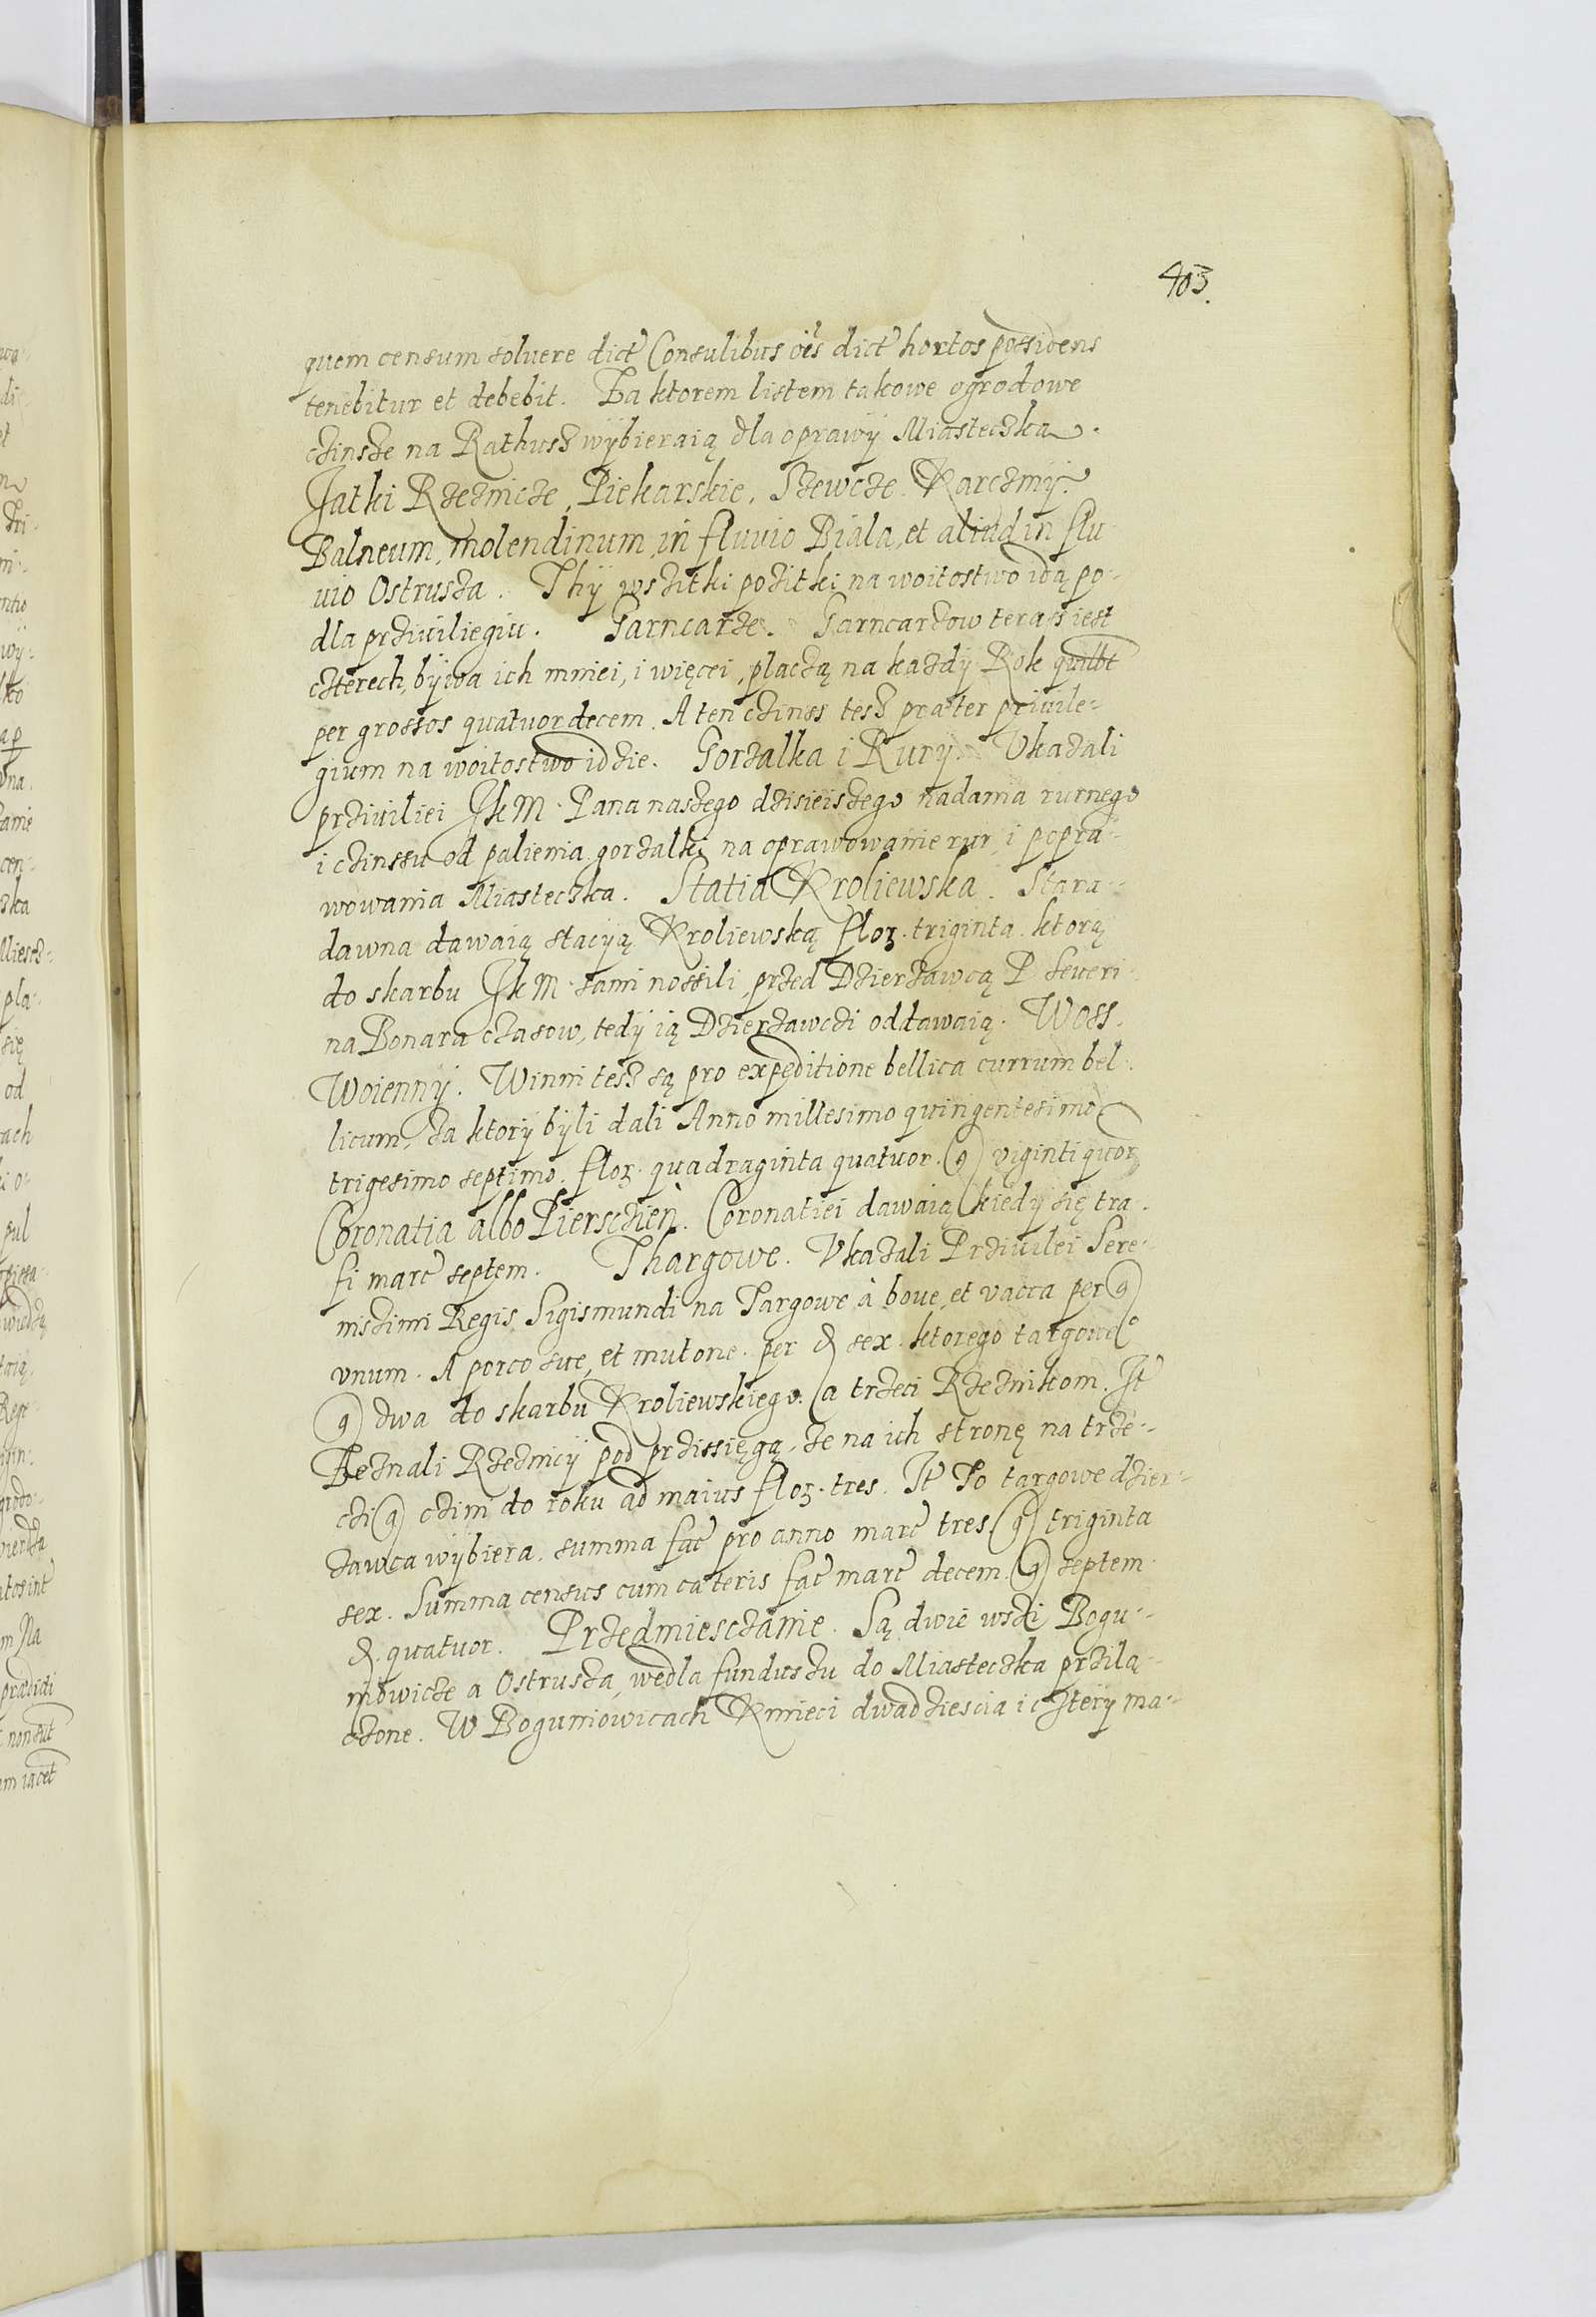 403.
quem censum soluere dict Consulibus oes dict hortos possidens
tenebitur et debebit. Za ktorem listem takowe ogrodowe
czinsze na Rathusz wÿbieraią dla oprawÿ Miasteczka.
Jatki Rzeznicze, Piekarskie, Szewcze. Karczmÿ.
Balneum, molendinum in fluuio Biala, et aliud in flu-
uio Ostrusza. Thÿ wszitki pozitki na woitostwo idą po-
dla prziuiliegiu. Garncarze. Garncarzow terass iest
czterech, bÿwa ich mniei, i więcei, płaczą na kazdÿ Rok quilbt
per grossos quatuordecem. A ten czinss tesz præter priuile-
gium na woitostwo idzie. Gorzalka i Rurÿ. Vkazali
prziuiliei JkM Pana naszego dzisieiszego nadania rurnego
i czinssu od palienia gorzalki na oprawowanie rur, i popra-
wowania Miasteczka. Statia Kroliewska. Stara-
dawna dawaią stacÿą Kroliewską floz. triginta. ktorą
do skarbu JkM sami nossili, przed Dzierzawcą P Seueri-
na Bonara czasow, tedÿ ią Dzierzawczi oddawaią. Woss
Woiennÿ. Winni tesz są pro expeditione bellica currum bel-
licum, za ktorÿ bÿli dali Anno millesimo quingentesimo
trigesimo septimo. floz. quadraginta quatuor. g viginti quor
Coronatia albo Piersczień. Coronatiei dawaią kiedÿ się tra-
fi marc septem. Thargowe. Vkazali Prziuilei Sere-
niszimi Regis Sigismundi na Targowe à boue, et vacca per g
vnum. A porco sue, et mutone. per d sex. ktorego targowe
g dwa do skarbu Kroliewskiego. a trzeci Rzeznikom. It
Zeznali Rzeznicÿ pod przissięgą, ze na ich stronę na trze-
czi g czim do roku ad maius floz. tres. It To targowe dzier-
zawca wÿbiera. summa fac pro anno marc tres. g triginta
sex. Summa census cum cæteris fac marc decem. g septem
d. quatuor. Przedmiesczanie. Są dwie wszi Bogu-
niowicze a Ostrusza, wedla funduszu do Miasteczka przilą-
czone. W Boguniowicach Kmieci dwadziescia i czterÿ ma-